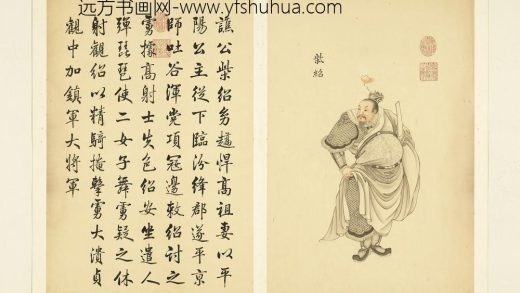 远方书画网-www.yfshuhua.com
柴紹
譙公柴紹幼趫悍高祖妻以平
陽公主從下臨汾絳郡遂平京
師吐谷渾党項寇邊敕紹討之
虜據高射士失色紹安坐遣人
彈琵琶使二女子舞虜疑之休
射觀紹以精騎掩擊虜大潰貞
觀中加鎮軍大將軍